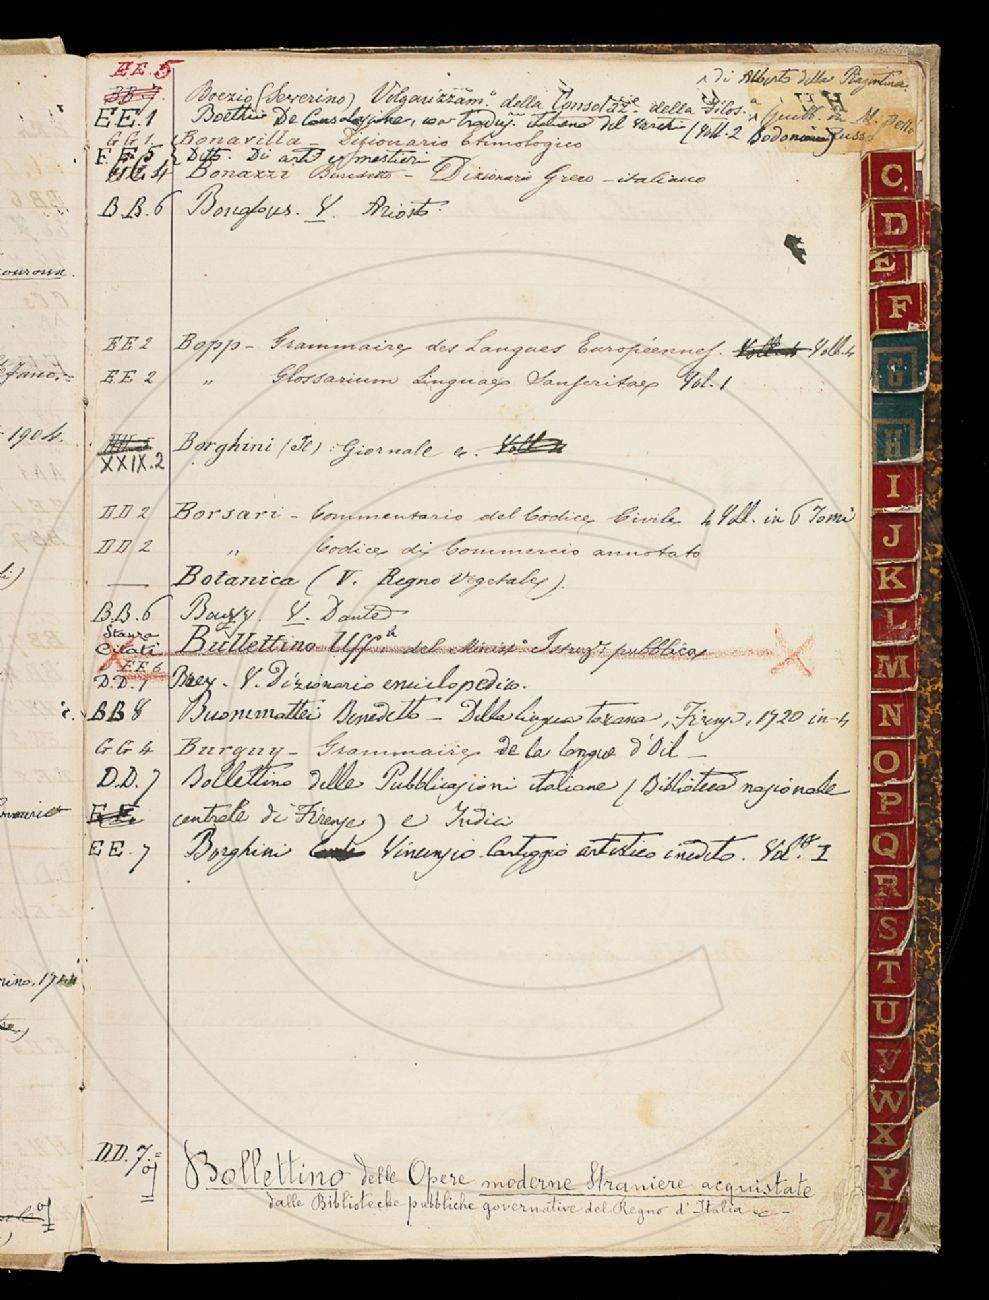 EE.5
BB.7. Boezio (Severino) Volgarizzam.º della Consolaz.e della Filos.a di Alberto della Piagentina
EE.1 Boethii De Consolatione, con traduz. italiana del Varchi (Voll. 2 Bodoniani)
GG1. Bonavilla - Dizionario Etimologico
EE5 Dtto. Di arti e mestieri
GG4 Bonazzi Benedetto - Dizionario Greco - italiano
B.B.6 Bongfous. V. Ariosto.
EE2 Bopp - Grammaire des Langues Européennes. Voll. 4
EE2 „ Glossarium Linguae Sanscritae Vol. 1
XXIX.2 Borghini (Il) Giornale ec.
DD2 Borsari - Commentario del Codice Civile 4 Voll. in 6 Tomi
DD2 „ Codice di Commercio annotato
— Botanica (V. Regno Vegetale).
B.B.6 V. Dante
Stanza Citati Bullettino Uff. del Minist.º Istruz. pubblica
EE6
D.D.1 V. Dizionario enciclopedico.
BB8 Buommattei Benedetto - Della lingua toscana, Firenze, 1720 in-4
GG4 Burguy - Grammaire de la langue d'Oil -
D.D.7 Bollettino delle Pubblicazioni italiane (Biblioteca nazionale
centrale di Firenze) e Indici
EE.7 Borghini Vincenzio Carteggio artistico inedito. Vol. I
DD.7. Bollettino delle Opere moderne Straniere acquistate
dalle Biblioteche pubbliche governative del Regno d'Italia ec -
1904
1744
C
D
E
F
G
H
I
J
K
L
M
N
O
P
Q
R
S
T
U
V
W
X
Y
Z